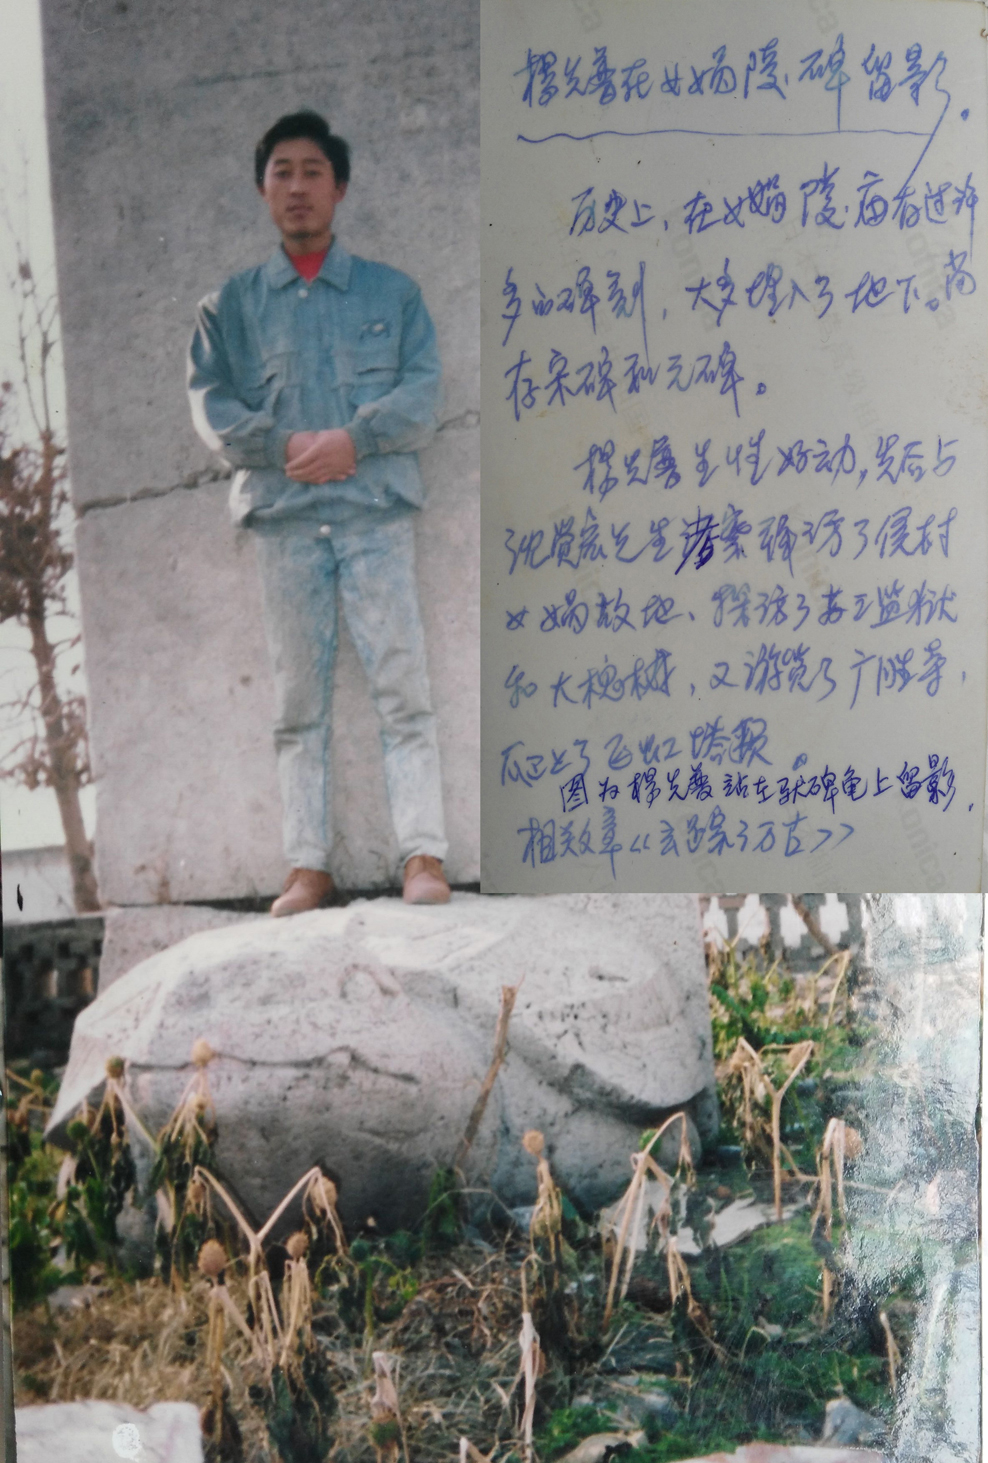 杨先普在女娲陵碑留影。
历史上,在女娲陵庙存过许
多的碑刻,大多埋入了地下。尚
存宋碑和元碑。
杨先普生性好动,先后与
沈贤宏先生考察 了侯村
女娲故地、探访了苏三监狱
和大槐树,又游览了广胜寺,
爬上了飞虹塔顶。
图为杨先普站在驮碑龟上留影.
相关文章《 踪万古》